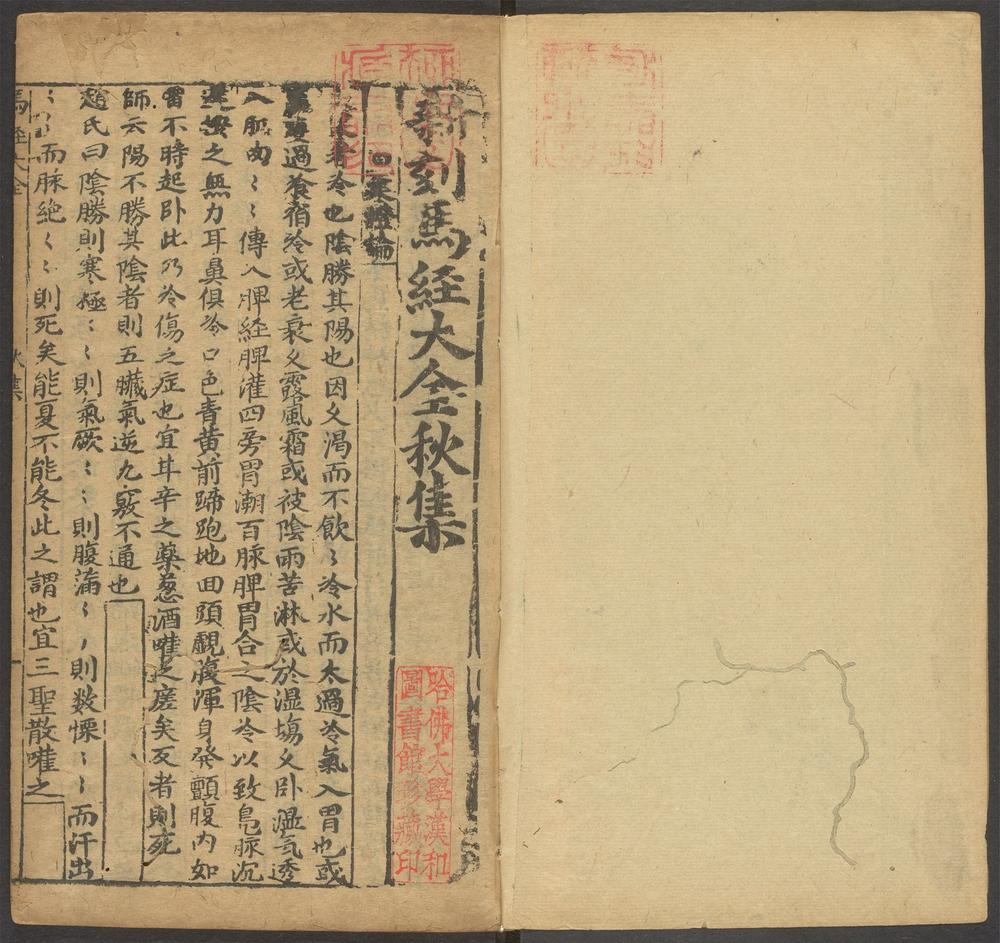 新刻馬經大全秋集
寒證論
者冷也陰勝其陽也因久渴而不飲〻冷水而太過冷氣入胃也或
過飡宿冷或老衰久露風霜或被陰雨苦淋或於濕塲久卧濕气透
入肌肉〻〻傳入脾経脾灌四旁胃潮百脉脾胃合之陰冷以致鳬脉沉
遲㩒之無力耳鼻俱冷口色青黄前蹄跑地回頭覷腹渾身發顫腹内如
雷不時起卧此乃冷傷之症也宜甘辛之藥葱酒嚾之瘥矣反者則死
師云陽不勝其陰者則五臓氣逆九竅不通也
趙氏曰陰勝則寒極〻〻則氣厥〻〻則腹滿〻〻則数慄〻〻而汗出
〻〻而脉絶〻〻則死矣能夏不能冬此之謂也宜三聖散嚾之
馬經大全
秋集
一
哈佛大學漢和
圖書館珍藏印